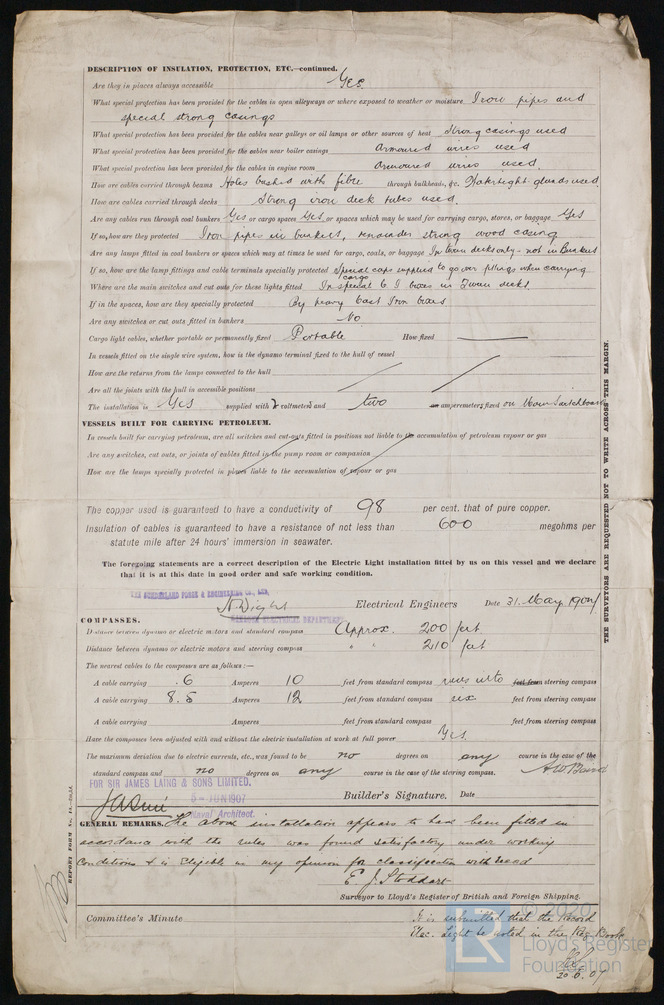 DESCRIPTION OF INSULATION, PROTECTION, ETC.—continued.
Are they in places always accessible Yes.
What special protection has been provided for the cables in open alleyways or where exposed to weather or moisture Iron pipes and
special strong casings
What special protection has been provided for the cables near galleys or oil lamps or other sources of heat Strong casings used
What special protection has been provided for the cables near boiler casings Armoured wires used
What special protection has been provided for the cables in engine room Armoured wires used.
How are cables carried through beams Holes bushed with fibre through bulkheads, &c. Watertight glands used
How are cables carried through decks Strong iron deck tubes used.
Are any cables run through coal bunkers Yes or cargo spaces Yes or spaces which may be used for carrying cargo, stores, or baggage Yes
If so, how are they protected Iron pipes in bunkers, remainder strong wood casing
Are any lamps fitted in coal bunkers or spaces which may at times be used for cargo, coals, or baggage In tween decks only - not in Bunkers
If so, how are the lamp fittings and cable terminals specially protected Special caps supplied to go over fittings when carrying
cargo
Where are the main switches and cut outs for these lights fitted In special C I boxes in Tween decks.
If in the spaces, how are they specially protected By heavy Cast Iron boxes
Are any switches or cut outs fitted in bunkers No
Cargo light cables, whether portable or permanently fixed Portable How fixed
In vessels fitted on the single wire system, how is the dynamo terminal fixed to the hull of vessel
How are the returns from the lamps connected to the hull
Are all the joints with the hull in accessible positions
The installation is Yes supplied with 2 voltmeters and two an amperemeters fixed on Main Switchboard
VESSELS BUILT FOR CARRYING PETROLEUM.
In vessels built for carrying petroleum, are all switches and cut-outs fitted in positions not liable to the accumulation of petroleum vapour or gas
Are any switches, cut outs, or joints of cables fitted in the pump room or companion
How are the lamps specially protected in places liable to the accumulation of vapour or gas
The copper used is guaranteed to have a conductivity of 98 per cent. that of pure copper.
Insulation of cables is guaranteed to have a resistance of not less than 600 megohms per
statute mile after 24 hours' immersion in seawater.
The foregoing statements are a correct description of the Electric Light installation fitted by us on this vessel and we declare
that it is at this date in good order and safe working condition.
SUNDERLAND FORGE & ENGINEERING CO., LTD.
Electrical Engineers Date 31. May 1907
ELECTRICAL DEPARTMENT
COMPASSES.
Distance between dynamo or electric motors and standard compass Approx. 200 feet
Distance between dynamo or electric motors and steering compass " " 210 feet
The nearest cables to the compasses are as follows:—
A cable carrying .6 Amperes 10 feet from standard compass runs into feet from steering compass
A cable carrying 8.5 Amperes 12 feet from standard compass six feet from steering compass
A cable carrying Amperes feet from standard compass feet from steering compass
Have the compasses been adjusted with and without the electric installation at work at full power Yes
The maximum deviation due to electric currents, etc., was found to be no degrees on any course in the case of the
standard compass and no degrees on any course in the case of the steering compass.
FOR SIR JAMES LAING & SONS LIMITED.
5 - JUN 1907
Builder's Signature. Date
Naval Architect.
GENERAL REMARKS. The above installation appears to have been fitted in
accordance with the rules was found satisfactory under working
conditions & is eligible in my opinion for classification with record
E. J. Stoddart
Surveyor to Lloyd's Register of British and Foreign Shipping.
Committee's Minute
It is submitted that the Record
Elec. Light be noted in the Reg. Book
20.6.07
THE SURVEYORS ARE REQUESTED NOT TO WRITE ACROSS THIS MARGIN.
© 2020
LR
Lloyd's Register
Foundation